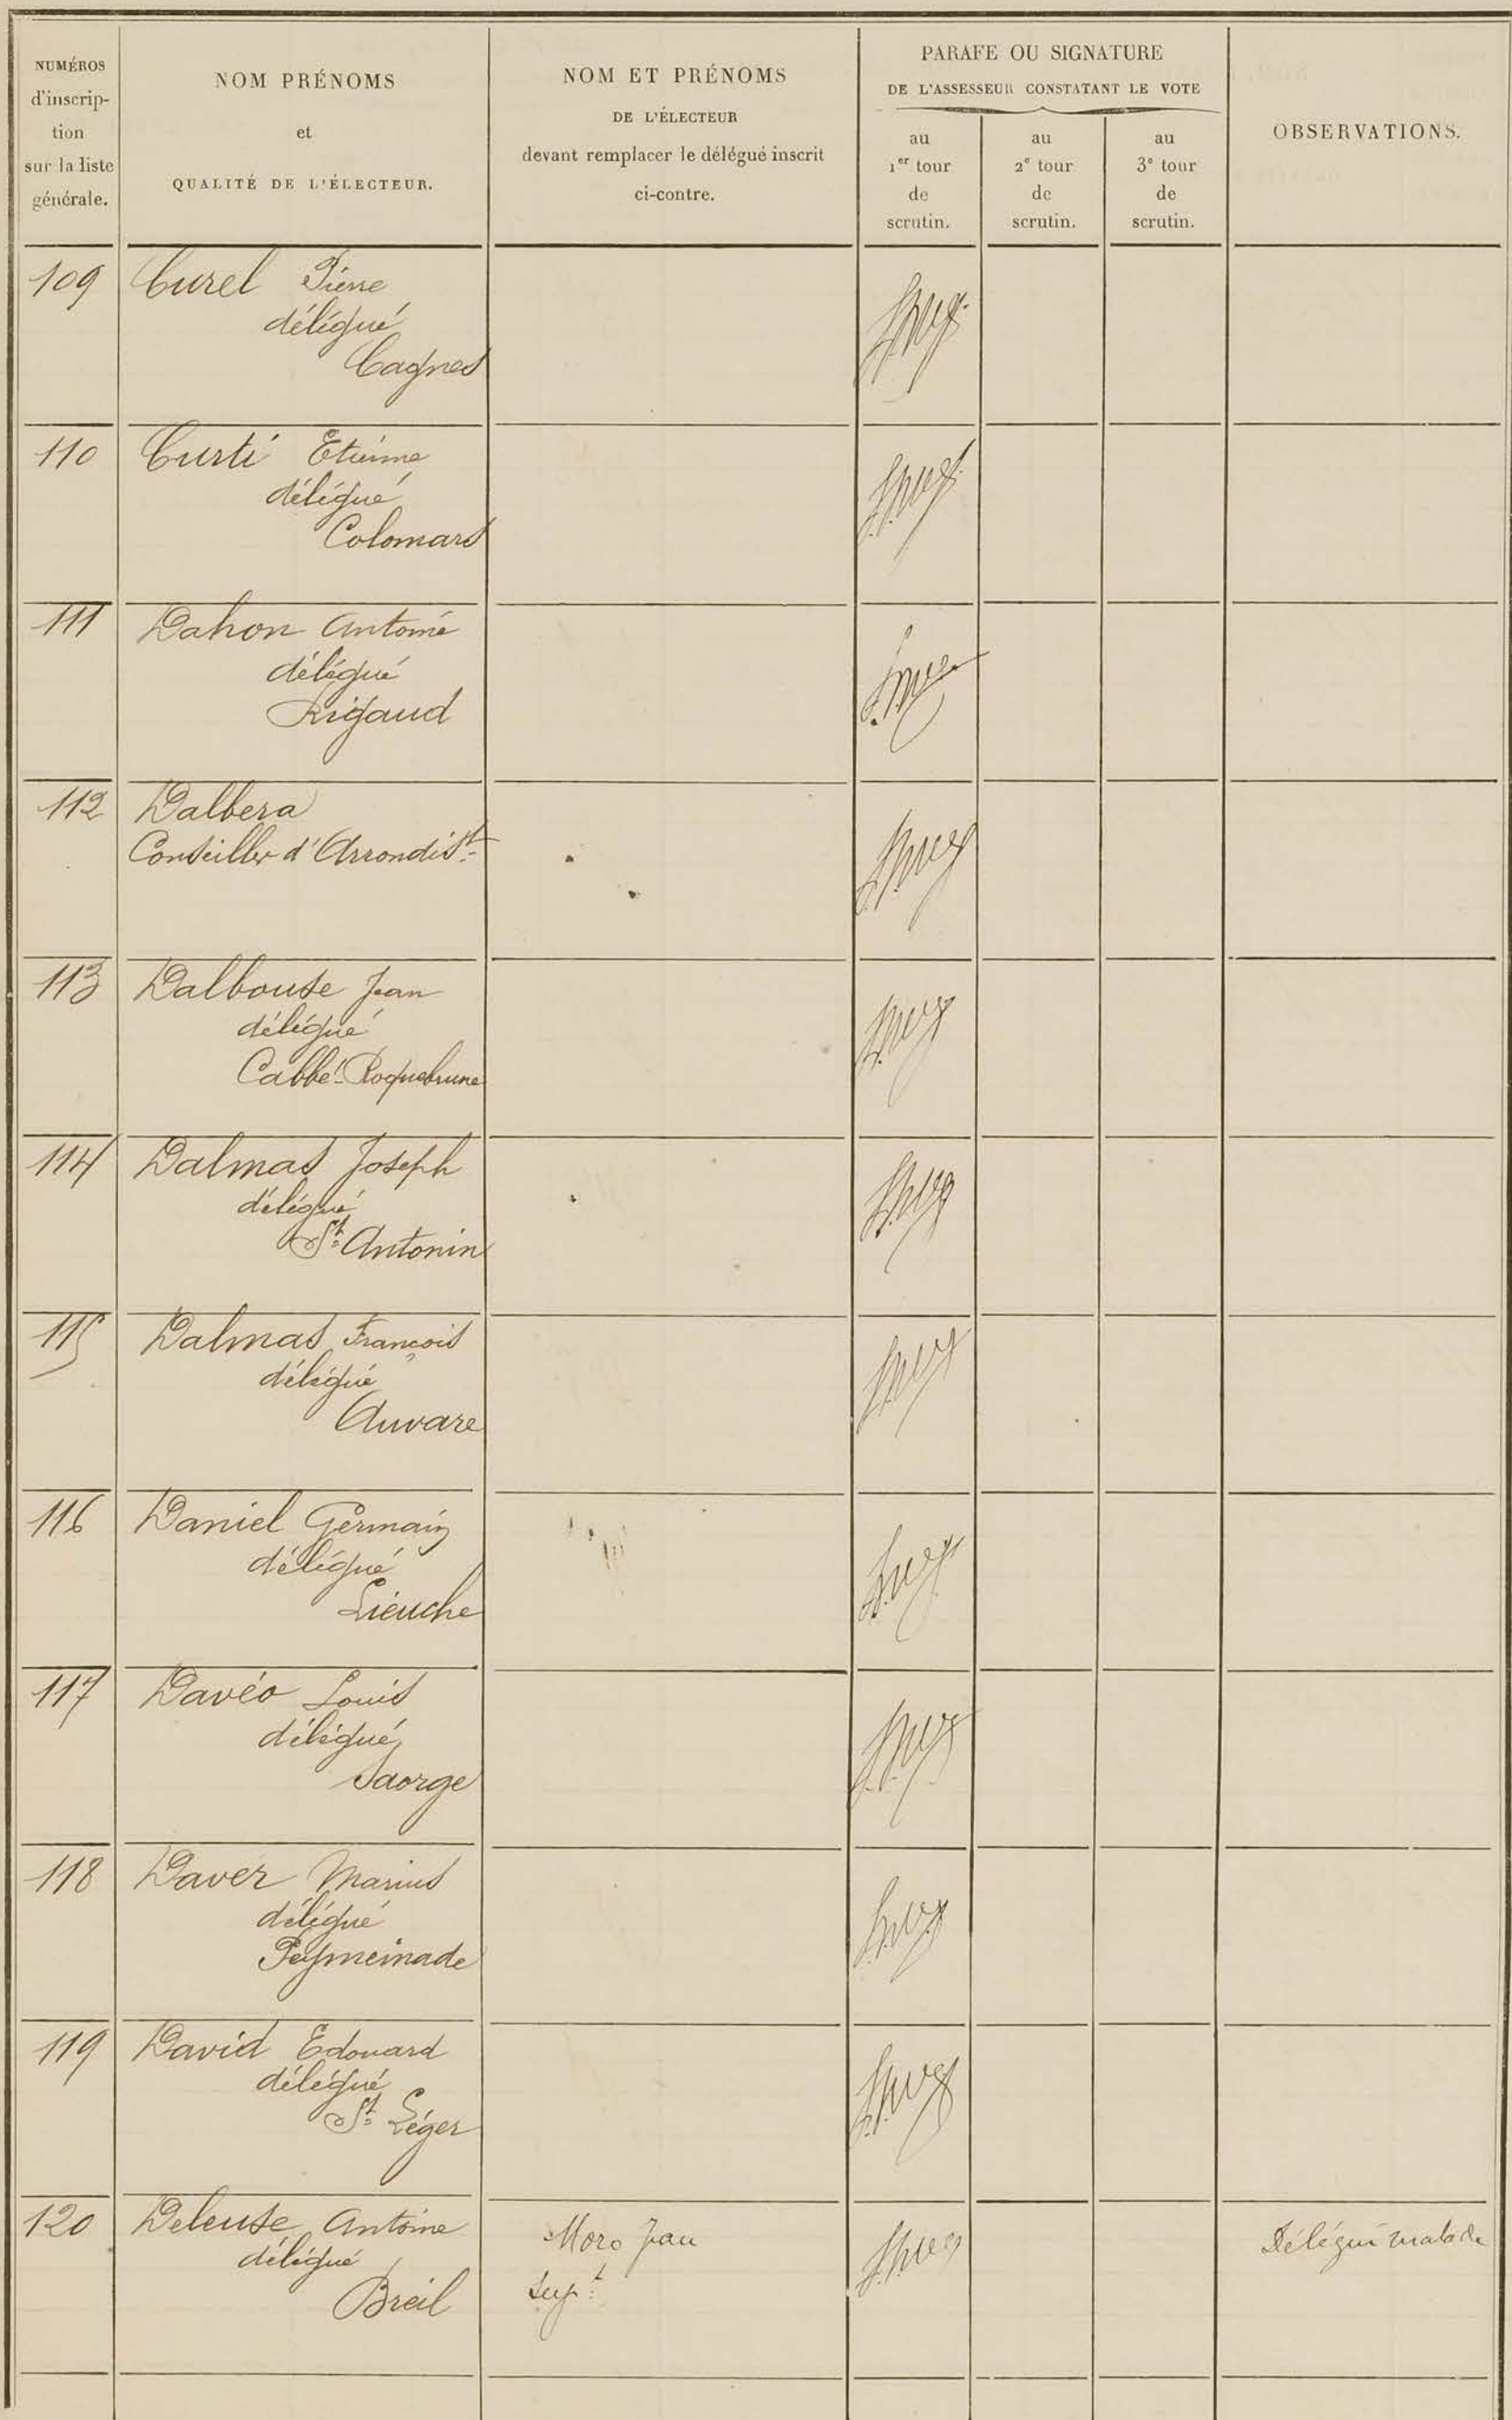 NUMÉROS
d'inscrip-
tion
sur la liste
générale.
NOM PRÉNOMS
et
QUALITÉ DE L'ÉLECTEUR.
NOM ET PRÉNOMS
DE L'ÉLECTEUR
devant remplacer le délégué inscrit
ci-contre.
PARAFE OU SIGNATURE
DE L'ASSESSEUR CONSTATANT LE VOTE
au
1er tour
de
scrutin.
au
2e tour
de
scrutin.
au
3e tour
de
scrutin.
OBSERVATIONS.
109 Curel Pierre
délégué
Cagnes
110 Curti Etienne
délégué
Colomars
111 Dahon Antoine
délégué
Rigaud
112 Dalbera
Conseiller d'Arrondist
113 Dalbouse Jean
délégué
Cabbé-Roquebrune
114 Dalmas Joseph
délégué
St Antonin
115 Dalmas François
délégué
Auvare
116 Daniel Germain
délégué
Lieuche
117 Davéo Louis
délégué
Saorge
118 Daver Marius
délégué
Peymeinade
119 David Edouard
délégué
St Léger
120 Deleuse Antoine Moro Jean Délégué malade
délégué
Supt
Breil